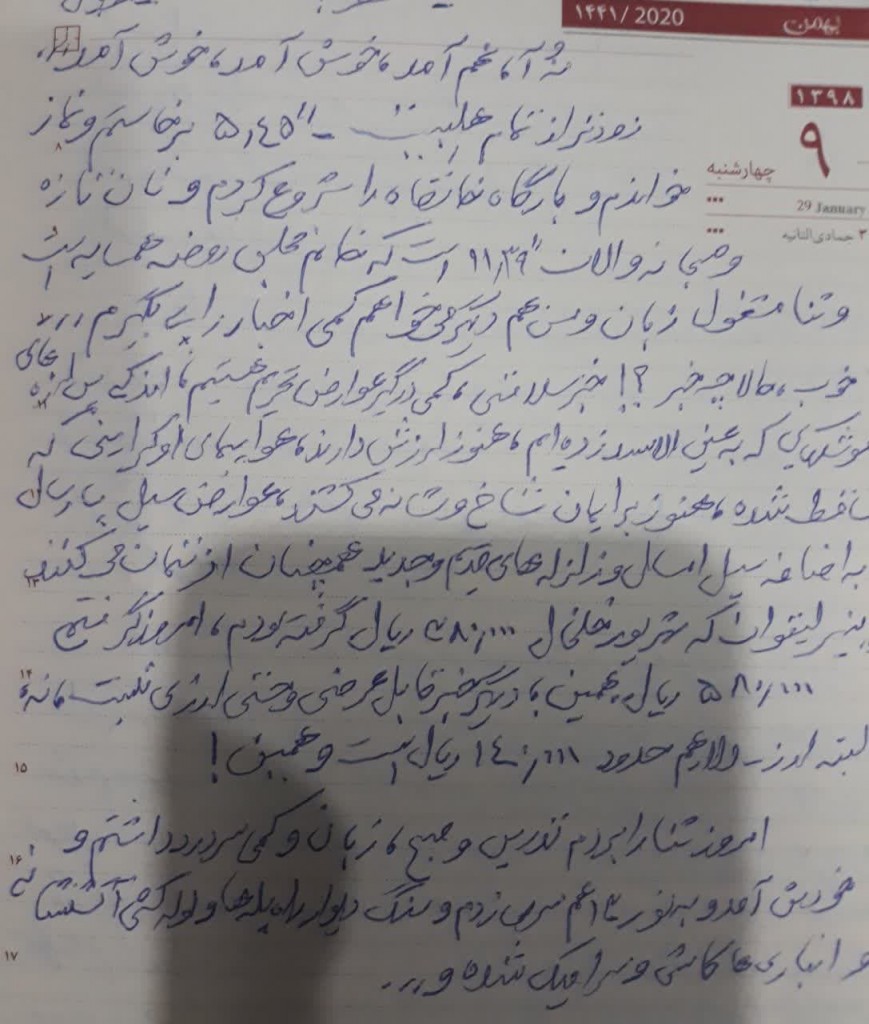 بهمن ۱۴۴۱/ 2020
۱۳۹۸
۹
چهارشنبه
29 January
۳ جمادی الثانیه
آمد، خوش آمد، خوش آمد
زودتر از تمام ۵,۴۵" برخاستم و نماز
۸
خواندم و بارگاه خانقاه را شروع کردم و نان تازه
و صبحانه والان ۱۱,۳۹" است که خانم مجلس روضه همسایه است
و ثنا مشغول زبان و من هم دیگر می‌خواهم کمی اخبار رایی بگیرم
خوب، حالا چه خبر ؟! خبر سلامتی، کمی درگیر عوارض تحریم هستیم، اندکی پس لرزه های
موشکهایی که به عین الاسد زده ایم، هنوز ارزش دارند، هواپیمای اوکراینی که
ساقط شده، هنوز برایمان شاخ و شانه می کشند، عوارض سیل پارسال
به اضافه سیل امسال و زلزله های قدیم و جدید همچنان اذیتمان می کنند
پنیر لیقوان که شهریور ۳۸۰,۰۰۰ ریال گرفته بودم، امروز گرفتیم
۱۴
۵۸۰,۰۰۰ ریال، همین، دیگر خبر قابل عرضی و حتی ارزی نیست، نه
البته ارز - دلار هم حدود ۱۴۰,۰۰۰ ریال است و همین !
۱۵
امروز ثنا را بردم تدریس و صبح، زبان و کمی سردرد داشتم و
۱۶
خودش آمد و به نور ۱۳ هم سری زدم و سنگ دیوار راه پله ها و لوله کشی آتشنشانی
و انباری ها کاشی و سرامیک شده و...
۱۷